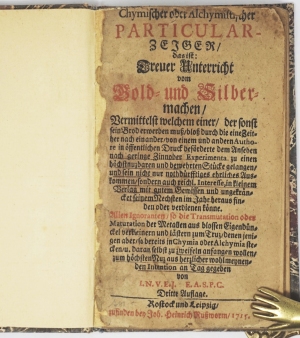 Chymischer oder Alchymistischer
PARTICULAR-
ZEIGER/
das ist:
Treuer Unterricht
vom
Gold- und Silber-
machen/
Vermittelst welchem einer/ der sonst
sein Brod erwerben muß/ bloß durch die eine Zeit-
her nach einander/ von einem und andern Autho-
re in öffentlichen Druck beförderte dem Ansehen
nach geringe Experimenta zu einen
höchstnutzbaren und bewehrten Stücke gelangen/
und sein nicht nur nothdürfftiges ehrliches Aus-
kommen/ sondern auch reichl. Interesse, in kleinem
Verlag mit gutem Gewissen und ungekrän-
cket seinem Nechsten im Jahr heraus fin-
den oder verdienen könne.
Allen Ignoranten/ so die Transmutation oder
Maturation der Metallen aus blossen Eigendün-
ckel verkleinern und lästern zum Trutz/ denen jeni-
gen aber/ so bereits in Chymia oder Alchymia ste-
cken/ u. daran selbst zu zweifeln anfangen wollen/
zum höchsten Nutz aus herzlicher wohlmeynen-
den Intention an Tag gegeben
von
I. N. V. E. J. E. A. S. P. C.
Dritte Auflage.
Rostock und Leipzig/
zu finden bey Joh. Heinrich Rußworm/ 1715.